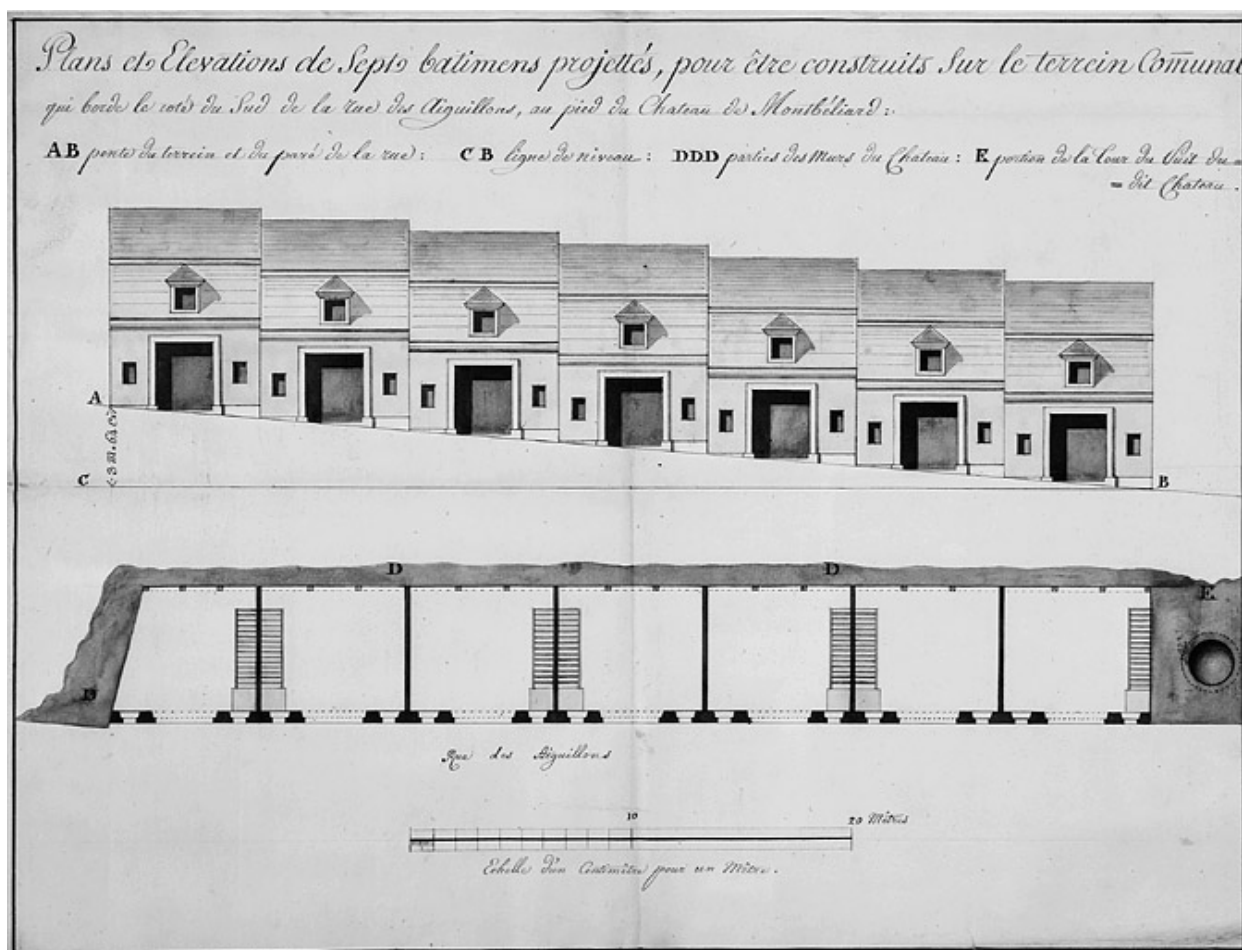 Plans et Elevations de Sept batimens projettés, pour être construits Sur le terrein Comunal
qui borde le coté du Sud de la rue des Aiguillons, au pied du Chateau de Montbéliard :
AB pente du terrein et du pavé de la rue : CB ligne de niveau : DDD parties des Murs du Chateau : E portion de la Cour du Puit du =
= dit Chateau.
A
C
B
D
D
D
E
Rue des Aiguillons
10
20 Mètres
Echelle d'un Centimètre pour un Mètre.